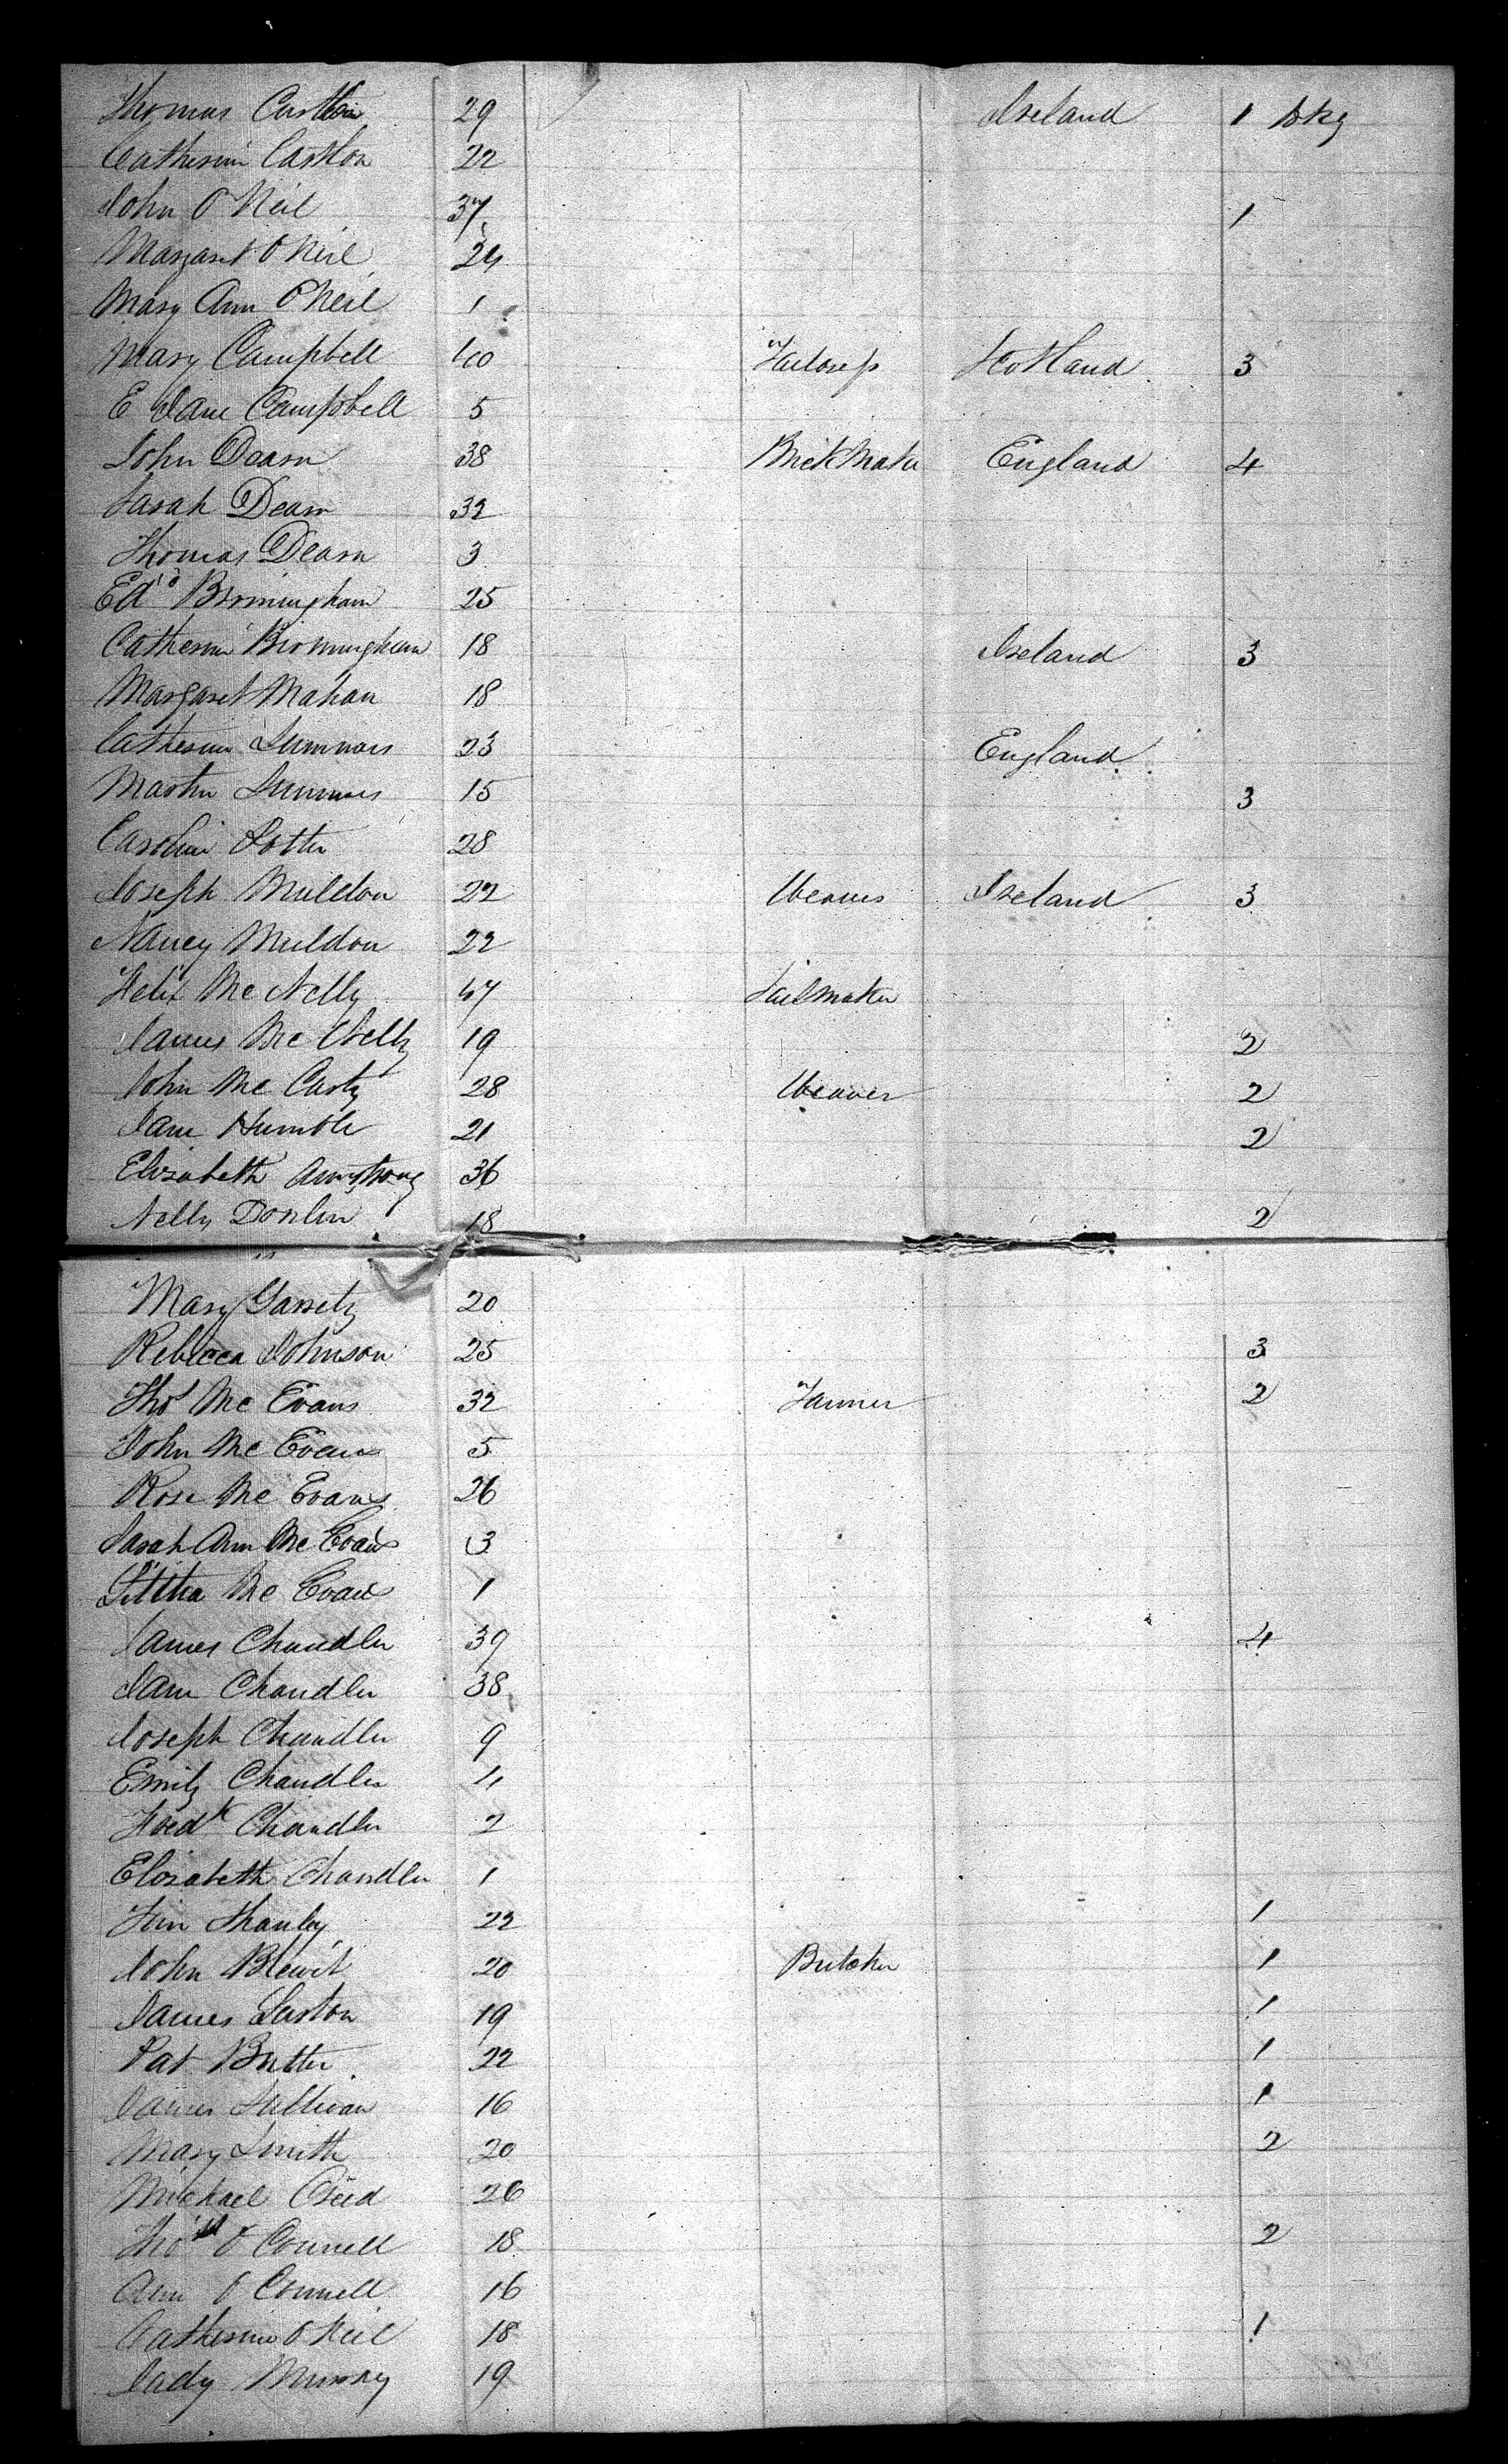 Thomas 29 Ireland 1 pkg
Catherine Caston 22
John O Neil 37 1
Margaret O Neil 24
Mary Ann O Neil 1
Mary Campbell 40 Scotland 3
E Jane Campbell 5
John Dearn 38 Brick Maker England 4
Sarah Dearn 32
Thomas Dearn 3
Edwd Birmingham 25
Catherine Birmingham 18 Ireland 3
Margaret Mahan 18
Catherine Summers 23 England
Martin Summers 15 3
Caroline Potter 28
Joseph Muldon 22 Weaver Ireland 3
Nancy Muldon 22
Felix Mc Nelly 47 Sailmaker
James Mc Nelly 19 2
John Mc Carty 28 Weaver 2
Jane Humble 21 2
Elizabeth Armstrong 36
Nelly Donlin 18 2
Mary 20
Rebecca Johnson 25 3
Thos Mc Evans 32 2
John Mc Evans 5
Rose Mc Evans 26
Sarah Ann Mc Evans 3
Mc Evans 1
James Chandler 39 4
Jane Chandler 38
Joseph Chandler 9
Emily Chandler 4
Fredk Chandler 2
Elizabeth Chandler 1
22 1
John Blewit 20 Butcher 1
James 19 1
Pat 22 1
James Sullivan 16 1
Mary Smith 20 2
Michael 26
Thos O Connell 18 2
Ann O Connell 16
Catherine O Neil 18 1
Murray 19